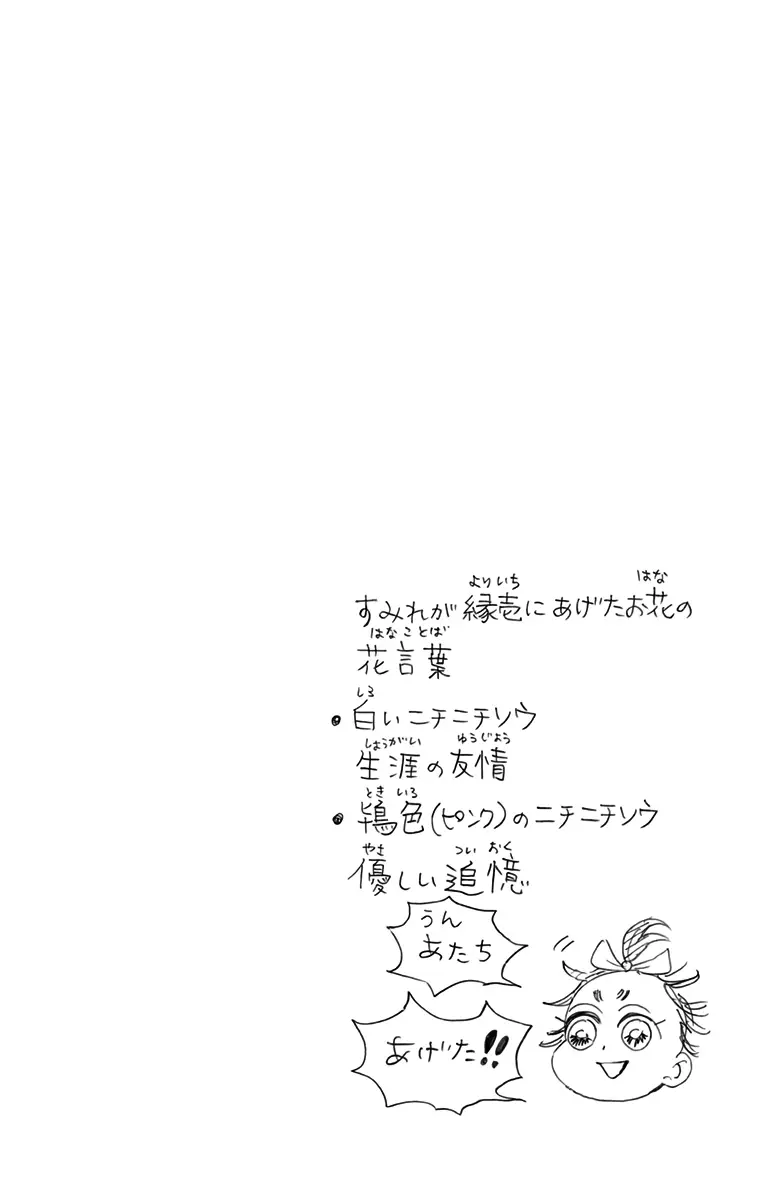 すみれが縁壱にあげたお花の
花言葉
• 白いニチニチソウ
生涯の友情
• 鴇色(ピンク)のニチニチソウ
優しい追憶
うん
あたち
あげた!!